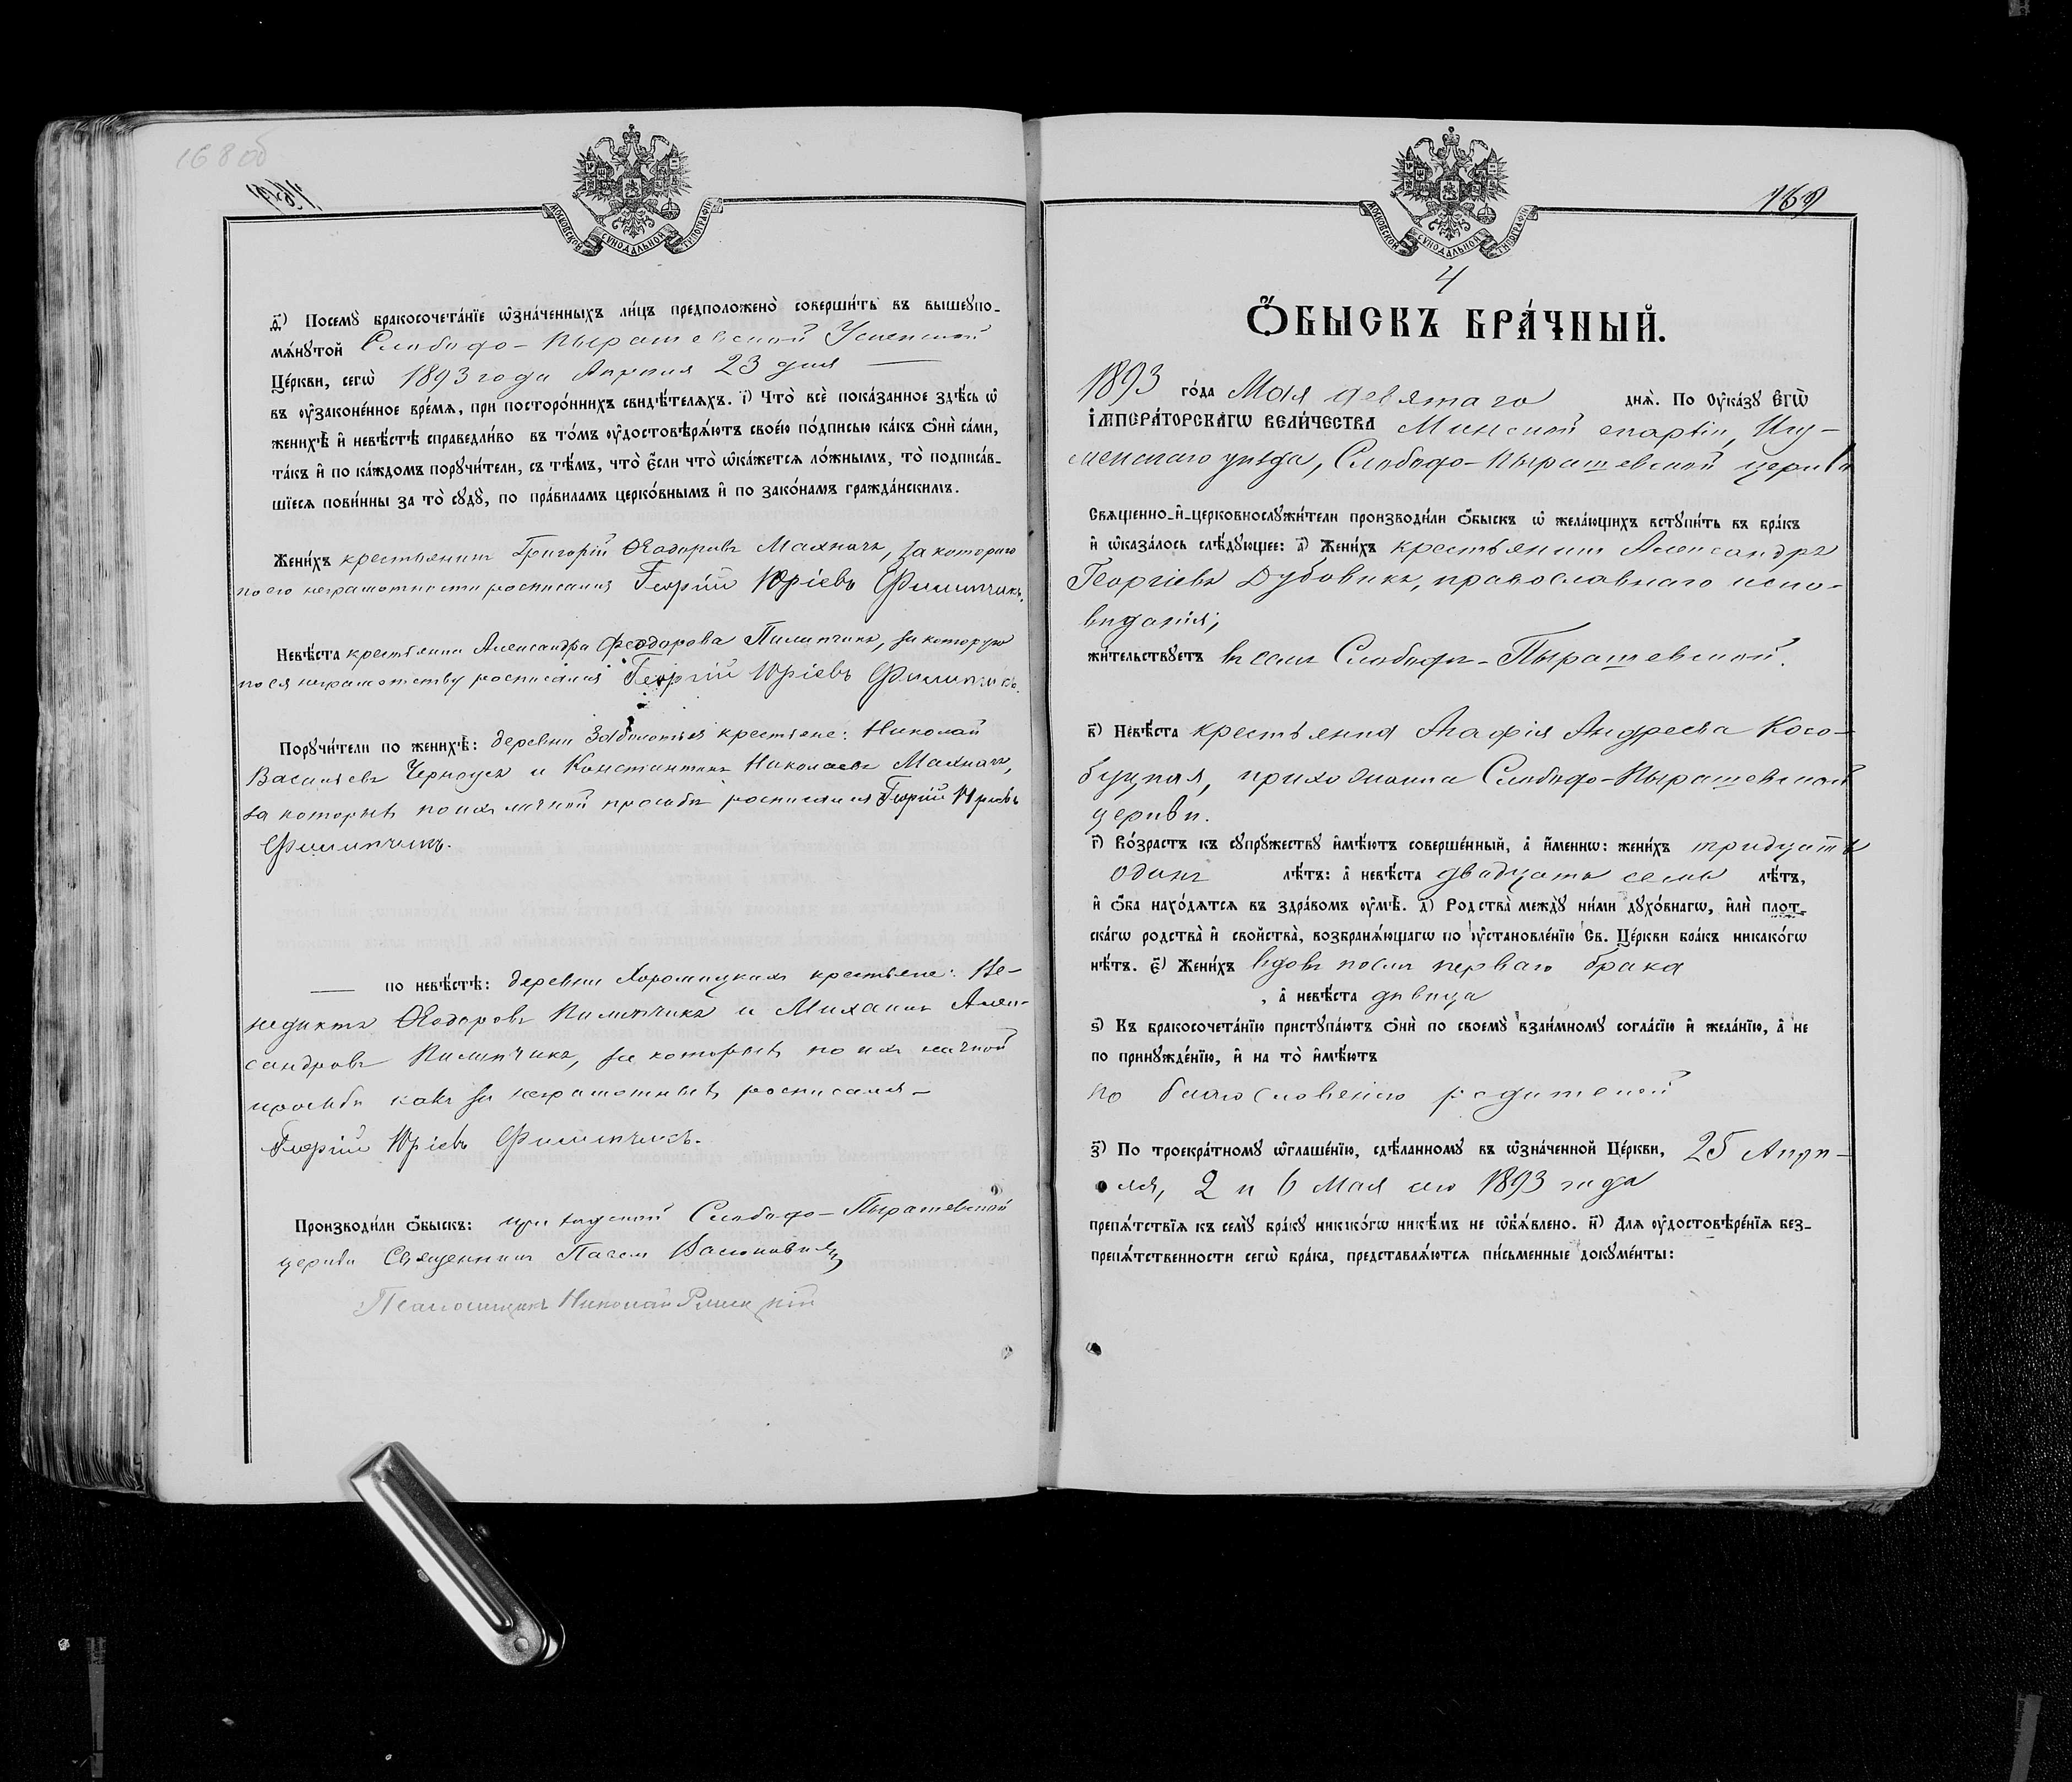 168 об
МОСКОВСКОЙ СУНОДАЛЬНОЙ ТИПОГРАФІИ
д҃) Посемꙋ̀ бракосочета́нїе ѡ҆зна́ченныхъ ли́цъ предположено̀ соверши́ть въ вышеꙋпо-
мѧ́нꙋтой Слободо-Пырашевской Успенской
Це́ркви, сегѡ̀ 1893 года Апрѣля 23 дня
въ ᲂу҆законе́нное вре́мѧ, при посторо́ннихъ свидѣ́телѧхъ. і҃) Что̀ всѐ пока́занное здѣ́сь ѡ҆
женихѣ̀ и҆ невѣ́стѣ справедли́во въ то́мъ ᲂу҆достовѣрѧ́ютъ свое́ю по́дписью ка́къ ѻ҆нѝ са́ми,
та́къ и҆ по ка́ждомъ поручи́тели, съ тѣ́мъ, что̀ є҆́сли что̀ ѡ҆ка́жетсѧ ло́жнымъ, то̀ подписа́в-
шїесѧ пови́нны за то̀ сꙋдꙋ̀, по пра́виламъ церко́внымъ и҆ по зако́намъ гражда́нскимъ.
Жени́хъ крестьянинъ Григорій Ѳеодоровъ Махначъ, за котораго
по его неграмотности росписался Георгій Юріевъ Филипчикъ.
Невѣ́ста крестьянка Александра Феодорова Пилипчикъ, за которую
по ея неграмотству росписался Георгій Юріевъ Филипчикъ.
Порꙋчи́тели по женихѣ̀: деревни Заболотья крестьяне: Николай
Васильевъ Черноусъ и Константинъ Николаевъ Махначъ,
за которыхъ по их личной просьбѣ росписался Георгій Юріевъ
Филипчикъ.
по невѣ́стѣ: деревни Хоромицкихъ крестьяне: Ве-
недиктъ Ѳеодоровъ Пилипчикъ и Михаилъ Алек-
сандровъ Пилипчикъ, за которыхъ по их личной
просьбѣ какъ за неграмотныхъ росписался
Георгій Юріевъ Филипчикъ.
Производи́ли ѻ҆́быскъ: приходской Слободо-Пырашевской
церкви Священникъ Павелъ
Псаломщикъ Николай
169
МОСКОВСКОЙ СУНОДАЛЬНОЙ ТИПОГРАФІИ
4
Ѻ҆́БЫСКЪ БРА́ЧНЫЙ.
1893 го́да Мая девятаго днѧ̀. По Оу҆ка́зꙋ Е҆гѡ̀
І҆мпера́торскагѡ Вели́чества Минской епархіи, Игу-
менскаго уѣзда, Слободо-Пырашевской церкви
Свѧщенно-и҆-церковнослꙋжи́тели производи́ли ѻ҆́быскъ ѡ҆ жела́ющихъ встꙋпи́ть въ бра́къ
и҆ ѡ҆каза́лось слѣ́дꙋющее: а҃) Жени́хъ крестьянинъ Александръ
Георгіевъ Дубовикъ, православнаго испо-
вѣданія,
жи́тельствꙋетъ въ селѣ Слободѣ-Пырашевской.
в҃) Невѣ́ста крестьянка Агафія Андреева Косо-
буцкая, прихожанка Слободо-Пырашевской
церкви.
г҃) Во́зрастъ къ сꙋпрꙋ́жествꙋ и҆мѣ́ютъ соверше́нный, а҆ и҆́меннѡ: жени́хъ тридцать
одинъ лѣ́тъ: а҆ невѣ́ста двадцать семь лѣ́тъ,
и҆ ѻ҆́ба нахо́дѧтсѧ въ здра́вомъ ᲂу҆мѣ̀. д҃) Родства̀ междꙋ̀ ни́ми дꙋхо́внагѡ, и҆лѝ плот-
ска́гѡ родства̀ и҆ свойства̀, возбранѧ́ющагѡ по ᲂу҆становле́нїю Св. Це́ркви бра́къ никако́гѡ
нѣ́тъ. є҃) Жени́хъ вдовъ послѣ перваго брака
, а҆ невѣ́ста дѣвица
ѕ҃) Къ бракосочета́нїю пристꙋпа́ютъ ѻ҆нѝ по своемꙋ̀ взаи́мномꙋ согла́сїю и҆ жела́нїю, а҆ не
по принꙋжде́нїю, и҆ на то̀ и҆мѣ́ютъ
по благословенію родителей
з҃) По троекра́тномꙋ ѡ҆глаше́нїю, сдѣ́ланномꙋ въ ѡ҆зна́ченной Це́ркви, 25 Апрѣ-
ля, 2 и 6 Мая сего 1893 года
препѧ́тствїѧ къ семꙋ̀ бра́кꙋ никако́гѡ никѣ́мъ не ѡ҆б̾ѧ́влено. и҃) Длѧ ᲂу҆достовѣре́нїѧ без-
препѧ́тственности сегѡ̀ бра́ка, представлѧ́ютсѧ пи́сьменные докꙋме́нты: